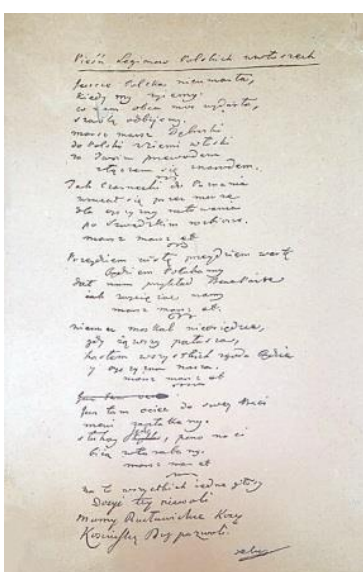 Pieśń Legionów Polskich we Włoszech
Jeszcze Polska nie umarła,
kiedy my żyjemy
co nam obca moc wydarła,
szablą odbijemy.
marsz marsz Dąbrski
do Polski z ziemi włoski
za Twoim przewodem
złączem się z narodem.
Jak Czarnecki do Poznania
wracał się przez morze
dla ojczyzny ratowania
po Szwedzkim rozbiorze.
marsz marsz et
Przejdziem Wisłę przejdziem Wartę
będziem Polakami
dał nam przykład Bonaparte
jak zwyciężać mamy
marsz marsz et.
Niemiec Moskal nie osiędzie,
gdy jąwszy pałasza,
hasłem wszystkich zgoda będzie
y ojczyzna nasza.
marsz marsz et
Już tam ociec do swej Basi
mówi zapłakany.
słuchaj, pono nasi
biją w tarabany.
marsz marsz et
na to wszystkich jedne głosy
Dosyć tej niewoli
mamy Racławickie Kosy
Kościuszkę Bóg pozwoli.